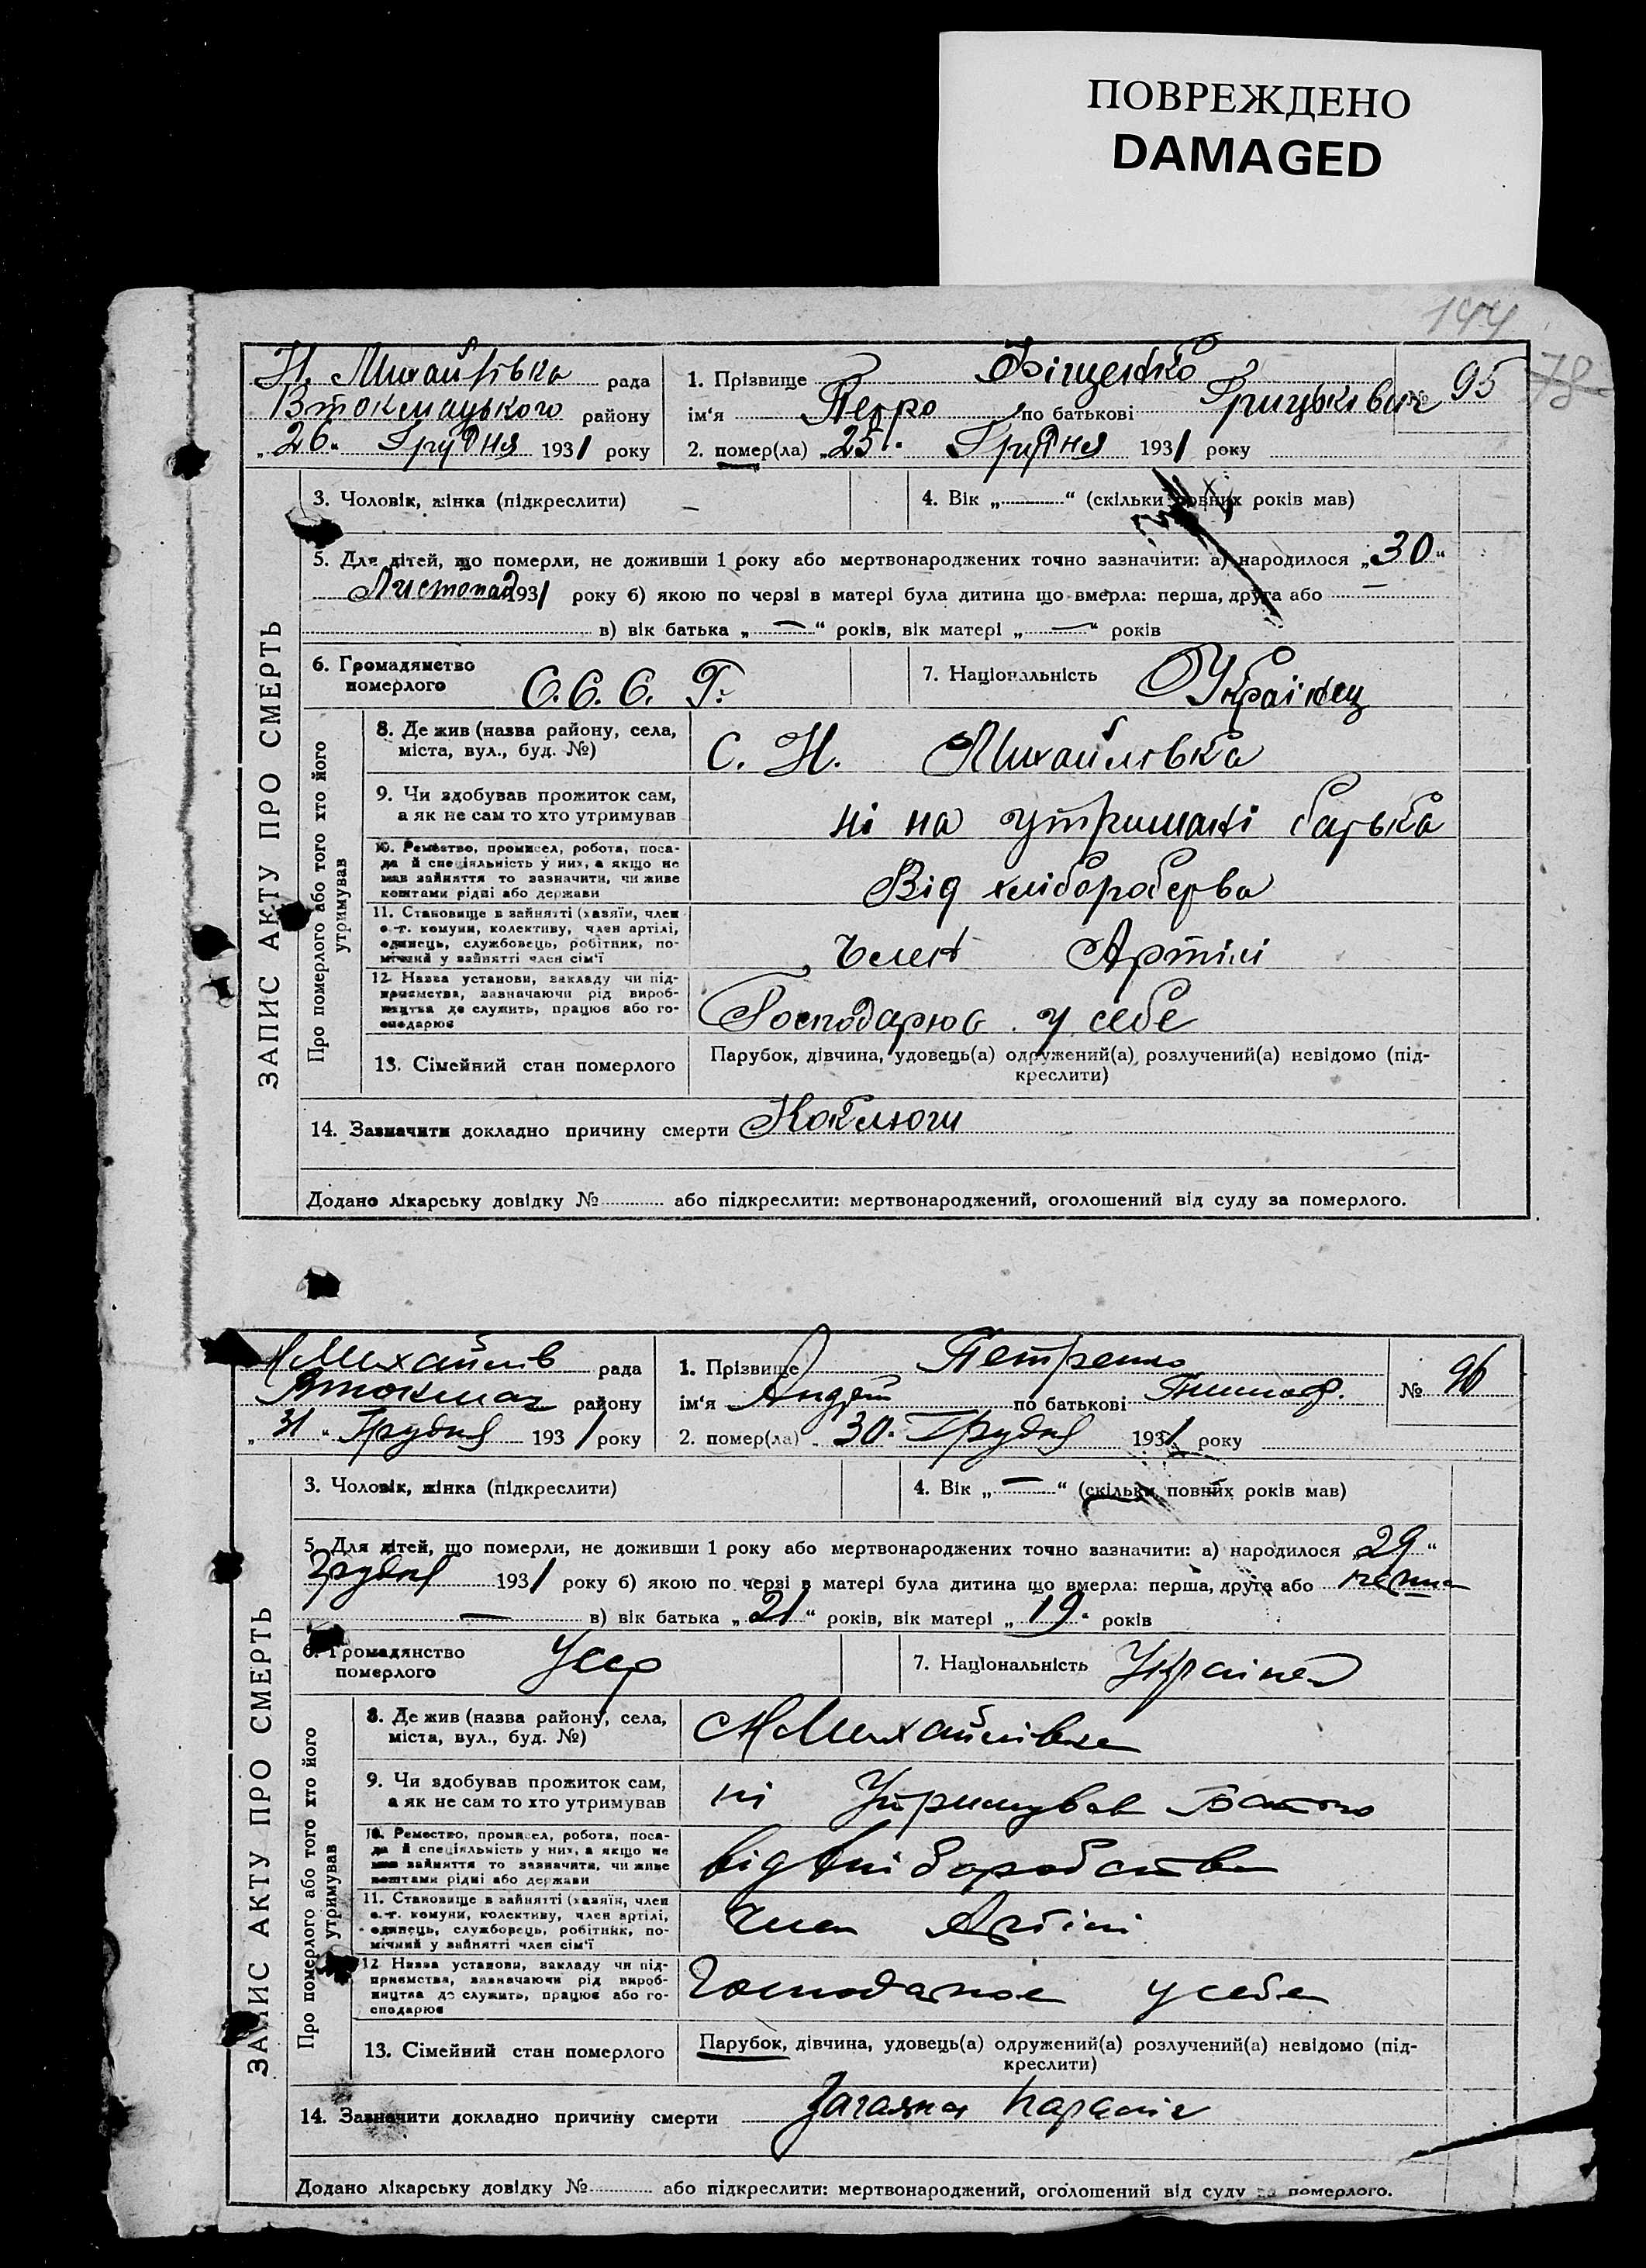 ПОВРЕЖДЕНО
DAMAGED
144
78
ЗАПИС АКТУ ПРО СМЕРТЬ
Н. Михайлівка рада
Втокмацького району
„26“ Грудня 1931 року
1. Прізвище Фіщенко
ім‘я Петро по батькові Грицькович
№ 95
2. помер(ла) „25“ Грудня 1931 року
3. Чоловік, жінка (підкреслити) –
4. Вік „ “ (скільки повних років мав)
5. Для дітей, що померли, не доживши 1 року або мертвонароджених точно зазначити: а) народилося „30“
Листопад 1931 року б) якою по черзі в матері була дитина що вмерла: перша, друга або —
в) вік батька „—“ років, вік матері „—“ років
6. Громадянство
померлого
С.С.С. Р.
7. Національність Українец
Про померлого або того хто його
утримував
8. Де жив (назва району, села,
міста, вул., буд. №)
С. Н. Михайлівка
9. Чи здобував прожиток сам,
а як не сам то хто утримував
ні на утримані батька
10. Ремество, промисел, робота, поса-
да й спеціяльність у них, а якщо не
мав зайняття то зазначити, чи живе
коштами рідні або держави
Від хліборобства
11. Становище в зайнятті (хазяїн, член
с.-г. комуни, колективу, член артілі,
одинець, службовець, робітник, по-
мічний у зайнятті член сім‘ї
Член Артілі
12. Назва установи, закладу чи під-
приємства, зазначаючи рід вироб-
ництва де служить, працює або го-
сподарює
Господарює у себе
13. Сімейний стан померлого
Парубок, дівчина, удовець(а) одружений(а) розлучений(а) невідомо (під-
креслити)
14. Зазначити докладно причину смерти Коклюш
Додано лікарську довідку № або підкреслити: мертвонароджений, оголошений від суду за померлого.
ЗАПИС АКТУ ПРО СМЕРТЬ
Н Михайлів рада
Втокмач району
„31“ Грудня 1931 року
1. Прізвище Петренко
ім‘я Андрій по батькові
№ 96
2. помер(ла) „30“ Грудня 1931 року
3. Чоловік, жінка (підкреслити)
4. Вік „—“ (скільки повних років мав)
5. Для дітей, що померли, не доживши 1 року або мертвонароджених точно зазначити: а) народилося „29“
Грудня 1931 року б) якою по черзі в матері була дитина що вмерла: перша, друга або
— в) вік батька „21“ років, вік матері „19“ років
6. Громадянство
померлого
Усср
7. Національність Українец
Про померлого або того хто його
утримував
8. Де жив (назва району, села,
міста, вул., буд. №)
Н Михайлівка
9. Чи здобував прожиток сам,
а як не сам то хто утримував
ні Утримував Батько
10. Ремество, промисел, робота, поса-
да й спеціяльність у них, а якщо не
мав зайняття то зазначити, чи живе
коштами рідні або держави
від хліборобства
11. Становище в зайнятті (хазяїн, член
с.-г. комуни, колективу, член артілі,
одинець, службовець, робітник, по-
мічний у зайнятті член сім‘ї
Член Артілі
12 Назва установи, закладу чи під-
приємства, зазначаючи рід вироб-
ництва де служить, працює або го-
сподарює
Господарює у себе
13. Сімейний стан померлого
Парубок, дівчина, удовець(а) одружений(а) розлучений(а) невідомо (під-
креслити)
14. Зазначити докладно причину смерти
Додано лікарську довідку № або підкреслити: мертвонароджений, оголошений від суду за померлого.